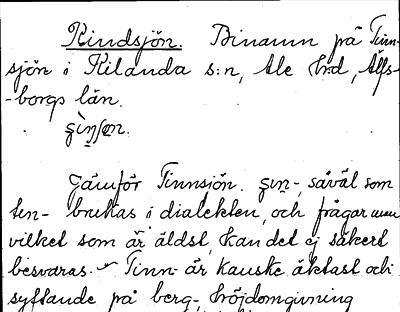 Kindsjön. Binamn på Tinn-
sjön i Kilanda s:n, Ale hrd, Älfs-
-borgs län.
Jämför Tinnsjön. såväl som
ten- brukas i dialekten, och frågar man
vilket som är äldst, kan det ej säkert
besvaras. Tinn- är kanske äktast och
syftande på berg-, höjdomgivning